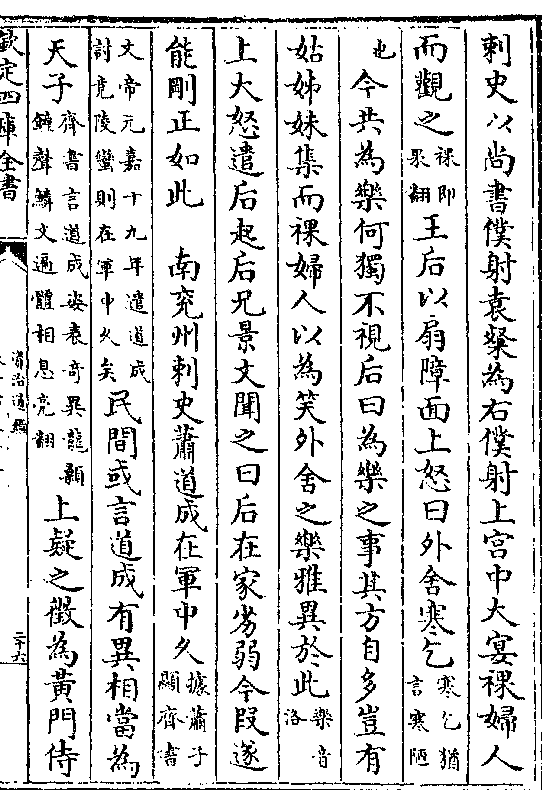 刺史以尚書僕射袁粲為右僕射上宮中大宴裸婦人
而觀之裸即果翻王后以扇障面上怒曰外舍寒乞寒乞猶言寒陋
也今共為樂何獨不視后曰為樂之事其方自多豈有
姑姊妹集而裸婦人以為笑外舍之樂雅異於此樂音洛
上大怒遣后起后兄景文聞之曰后在家劣弱今段遂
能剛正如此 南兖州刺史蕭道成在軍中久據蕭子顯齊書
文帝元嘉十九年遣道成討竟陵蠻則在軍中久矣民間或言道成有異相當為
天子齊書言道成姿表奇異龍顙鐘聲鱗文遍體相息亮翻上疑之徵為黄門侍
欽定四庫全書
資治通鑑
二十六